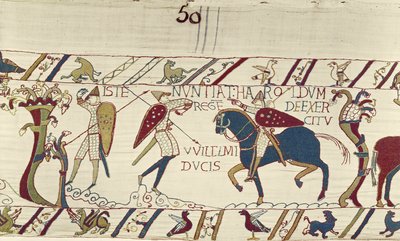 50
ISTE NVNTIAT: HAROLDVM
REGE DE EXER
CITV
VVILELMI
DVCIS